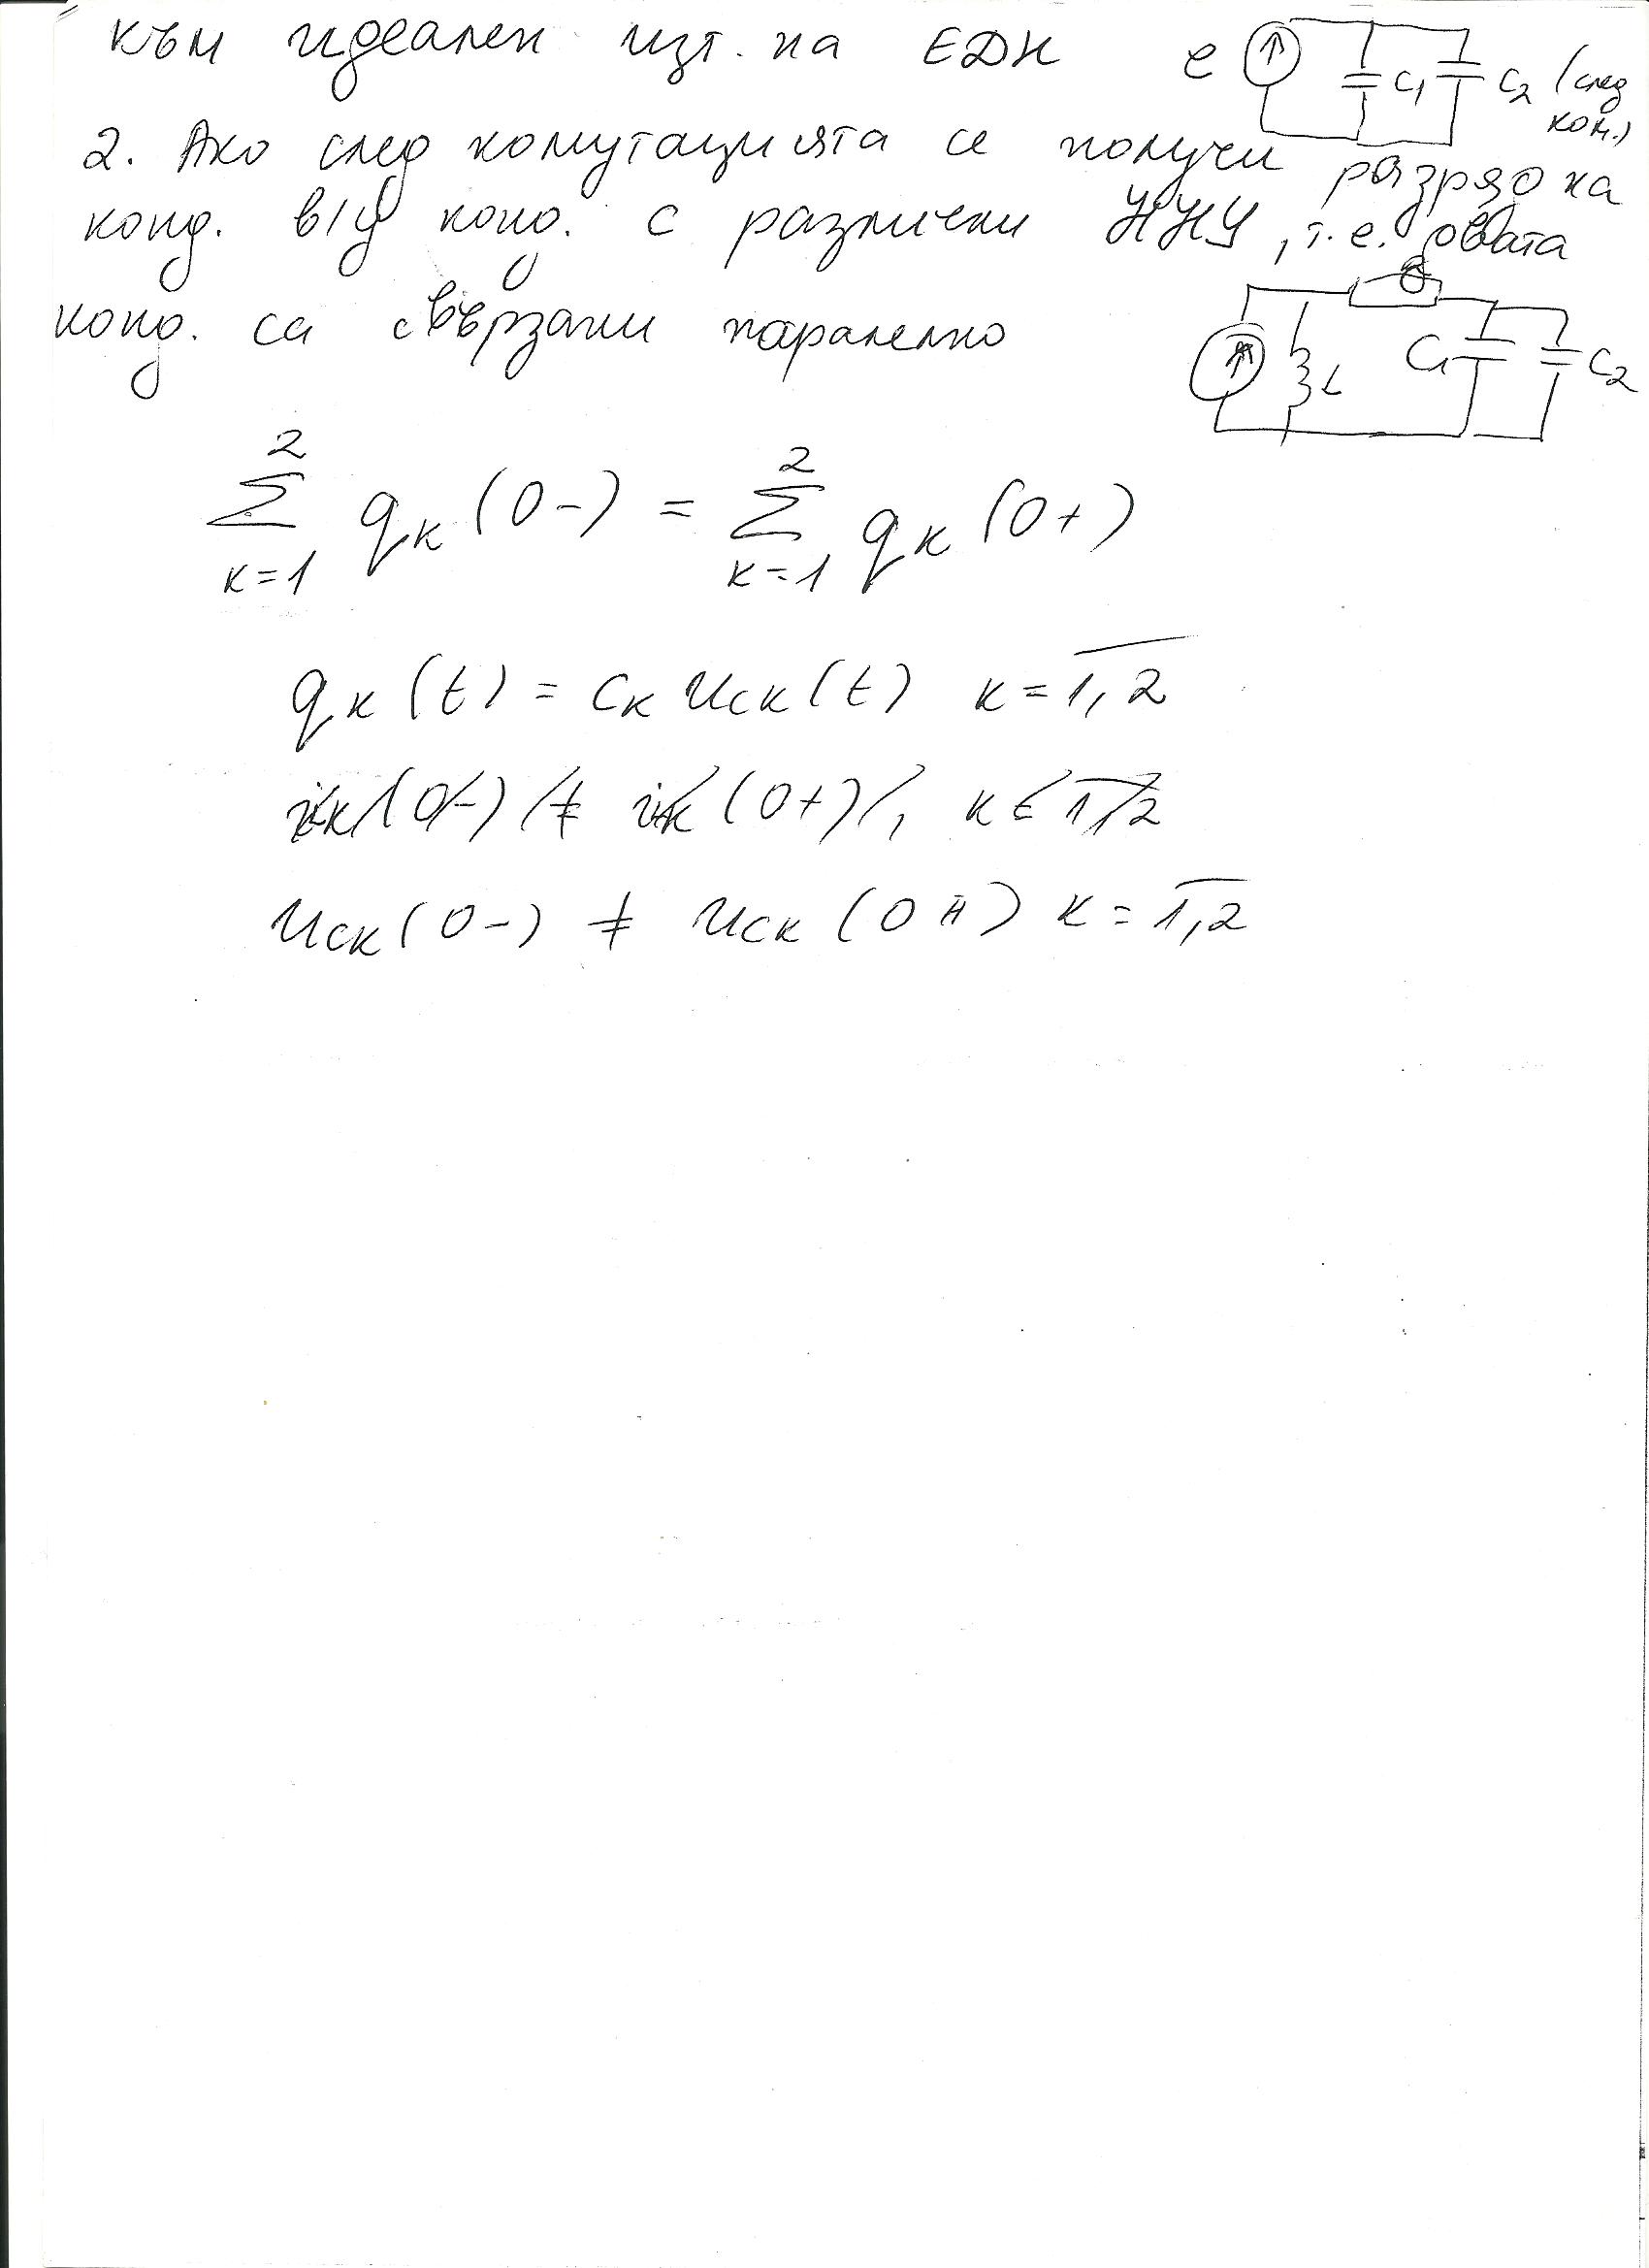 към идеален изт. на ЕДН e C1 C2 (след ком.)
2. Ако след комутацията се получи разряд на
конд. в/у конд. с различни ННУ, т.е. двата
конд. са свързани паралелно L C1 C2
2 2
Σ qk (0-) = Σ qk (0+)
k=1 k=1
qk (t) = Ck uck (t) k = 1,2
ik (0-) ≠ ik (0+), k = 1,2
uck (0-) ≠ uck (0+) k = 1,2